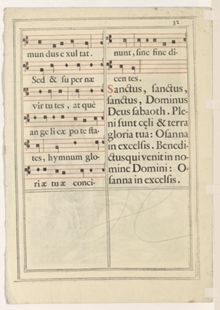 32
mun dus e xul tat.
Sed & su per næ
vir tu tes, at què
an ge li cæ po te sta-
tes, hymnum glo-
ri æ tu æ conci-
nunt, sine fine di-
cen tes.
Sanctus, sanctus,
sanctus, Dominus
Deus sabaoth. Ple-
ni sunt cęli & terra
gloria tua: Osanna
in excelsis. Benedi-
ctus qui venit in no-
mine Domini: O-
sanna in excelsis.